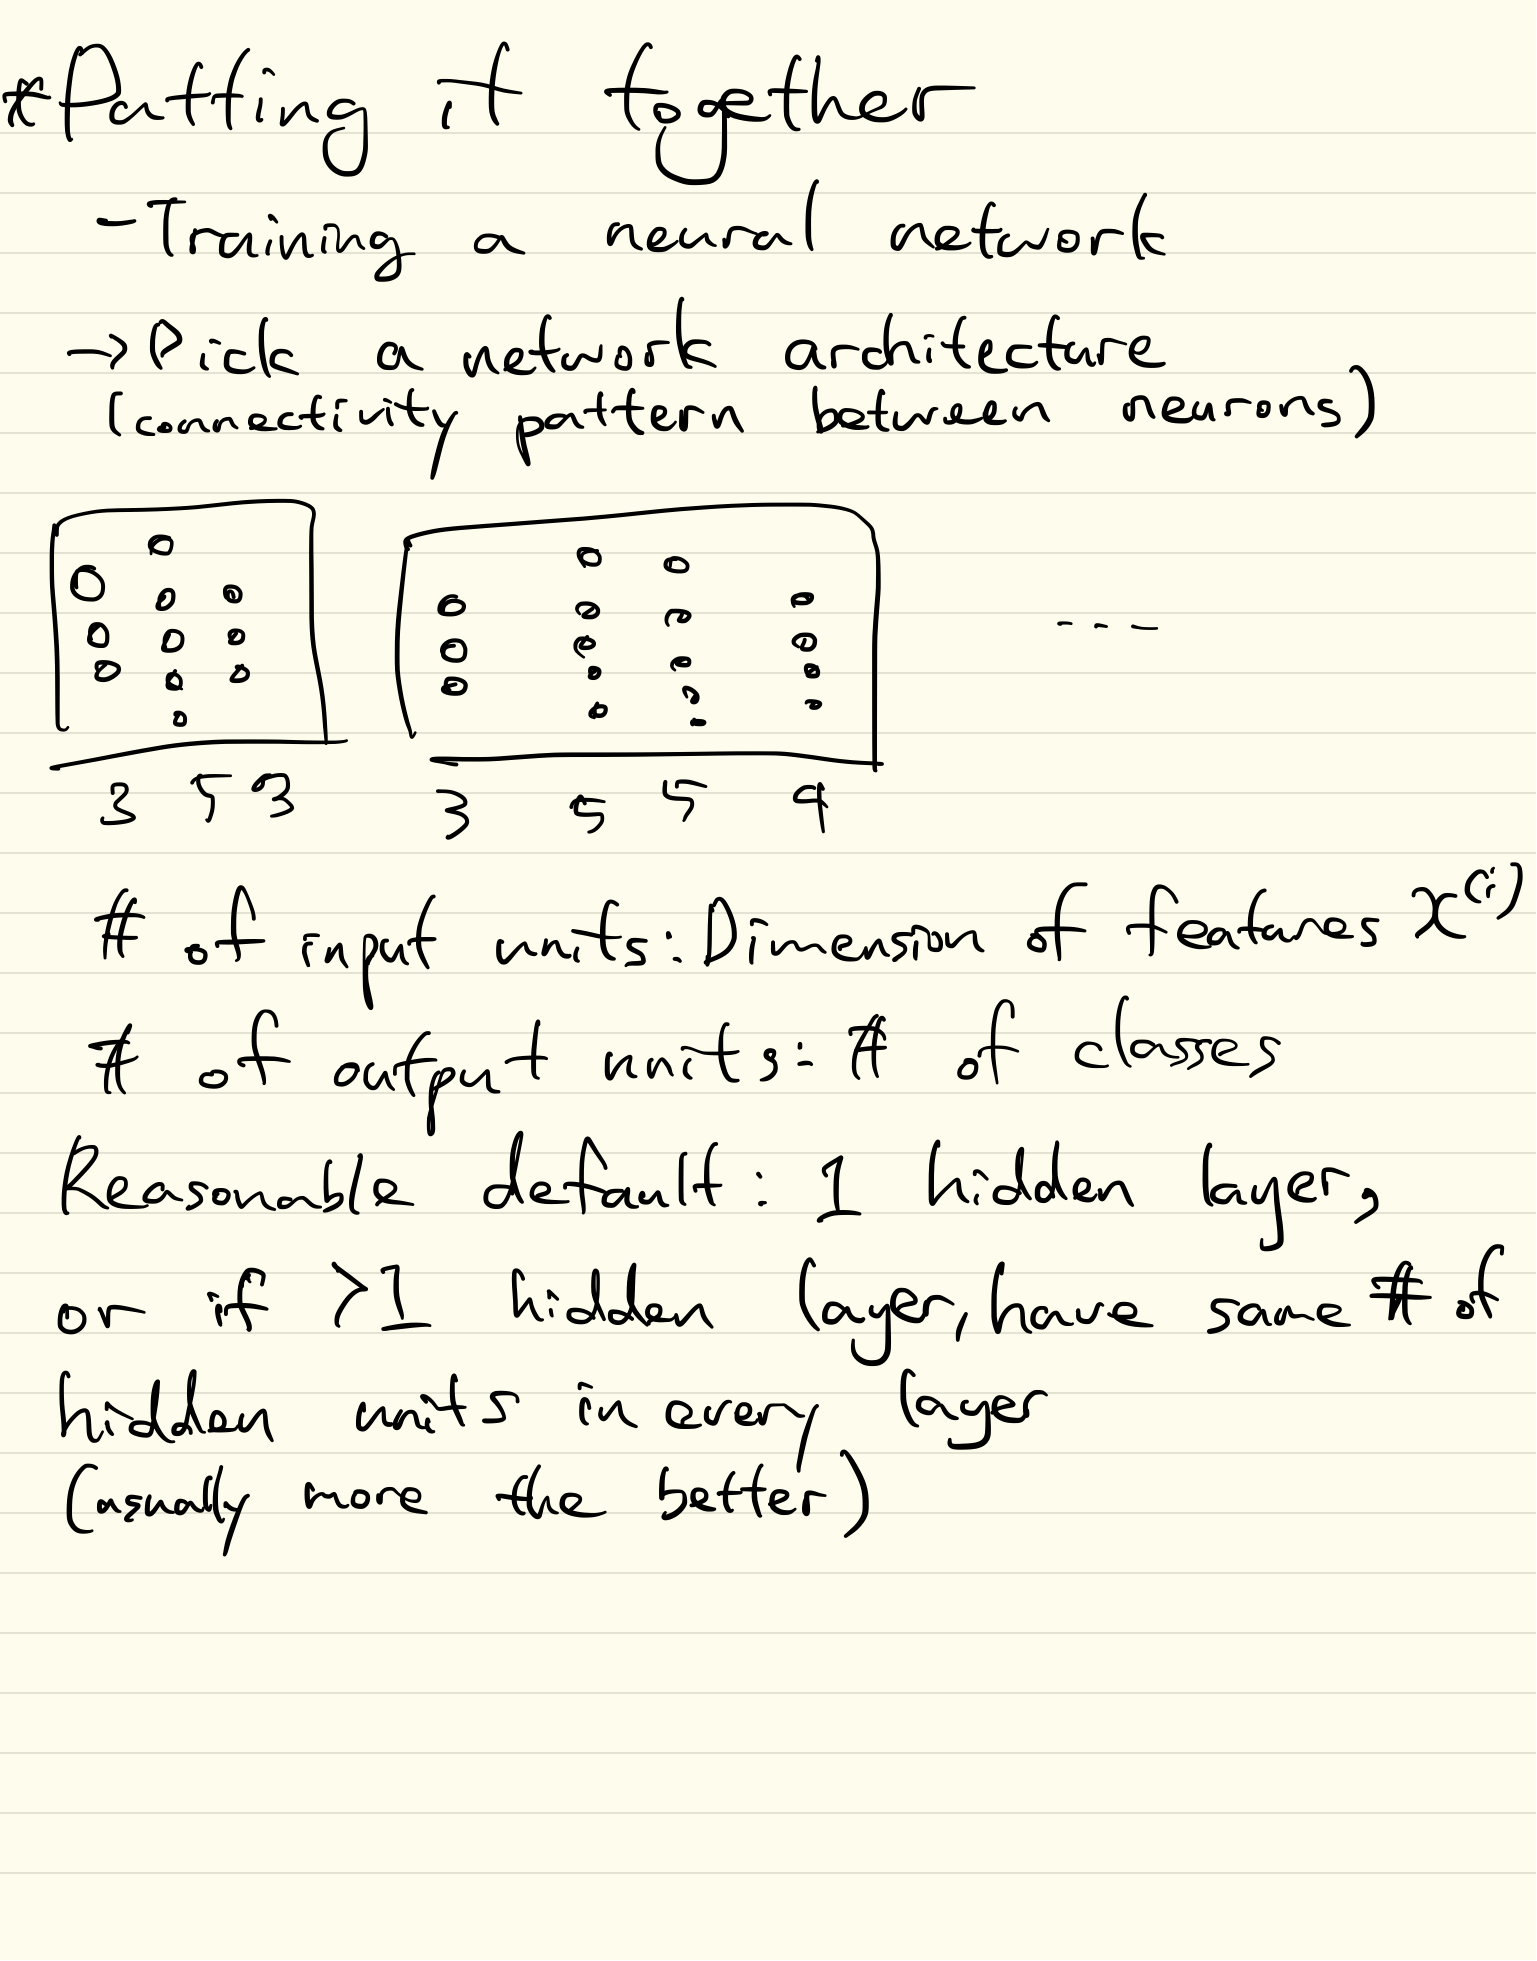 *Putting it together
-Training a neural network
→Pick a network architecture
(connectivity pattern between neurons)
---
3 5 3
3 5 5 4
# of input units: Dimension of features x⁽ⁱ⁾
# of output units: # of classes
Reasonable default: 1 hidden layer,
or if >1 hidden layer, have same # of
hidden units in every layer
(usually more the better)